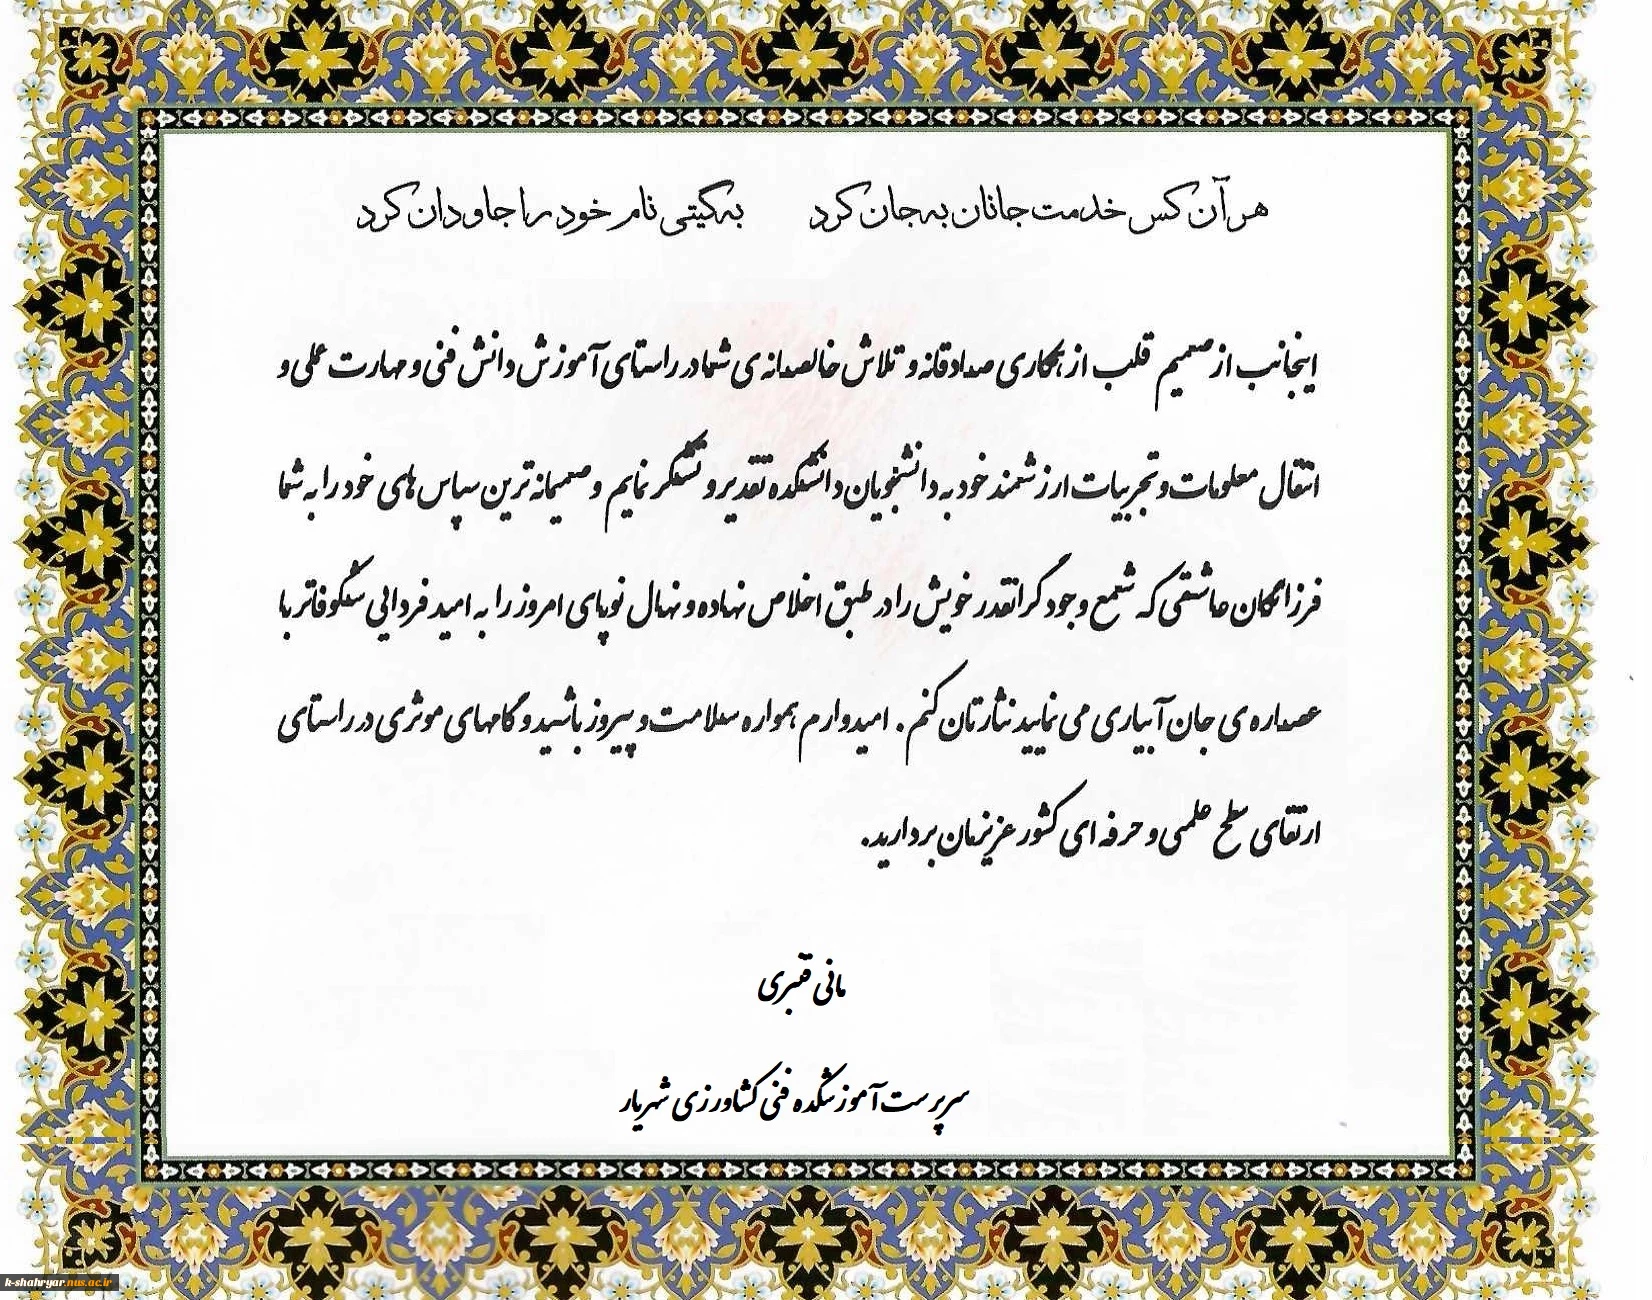 هر آن کس خدمت جانان به جان کرد به گیتی نام خود را جاودان کرد
اینجانب از صمیم قلب از همکاری صادقانه و تلاش خالصانه ی شما در راستای آموزش دانش فنی و مهارت عملی و
انتقال معلومات و تجربیات ارزشمند خود به دانشجویان دانشکده تقدیر و تشکر نمایم و صمیمانه ترین سپاس های خود را به شما
فرزانگان عاشقی که شمع وجود گرانقدر خویش را در طبق اخلاص نهاده و نهال نوپای امروز را به امید فردایی شکوفاتر با
عصاره ی جان آبیاری می نمایید نثارتان کنم. امیدوارم همواره سلامت و پیروز باشید و گامهای موثری در راستای
ارتقای سطح علمی و حرفه ای کشور عزیزمان بردارید.
مانی قنبری
سرپرست آموزشکده فنی کشاورزی شهریار
k-shahryar.nus.ac.ir